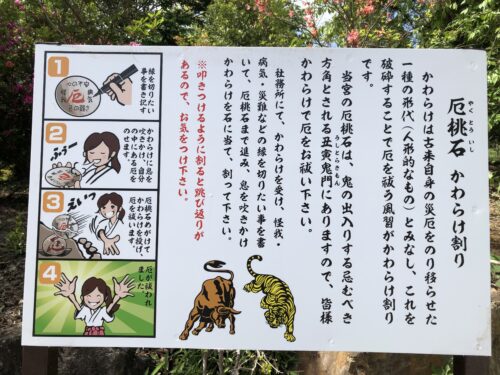 厄桃石 かわらけ割り
やく とう いし
かわらけは古来自身の災厄をのり移らせた
一種の形代（人形的なもの）とみなし、これを
破砕することで厄を祓う風習がかわらけ割り
です。
当宮の厄桃石は、鬼の出入りする忌むべき
方角とされる丑寅鬼門にありますので、皆様
うしとらきもん
かわらけで厄をお祓い下さい。
社務所にて、かわらけを受け、怪我・
病気・災難などの縁を切りたい事を書
いて、厄桃石まで進み、息を吹きかけ
かわらけを石に当て、割って下さい。
※叩きつけるように割ると跳び返りが
あるので、お気をつけ下さい。
1
縁を切りたい
事を書き記す
厄
2
かわらけに息を
吹きかけ、自分
の中にある厄を
のせます。
ふぅー
3
厄桃石めがけて
かわらけを投げ、
厄を祓います。
えいっ
4
厄が祓われ
ました